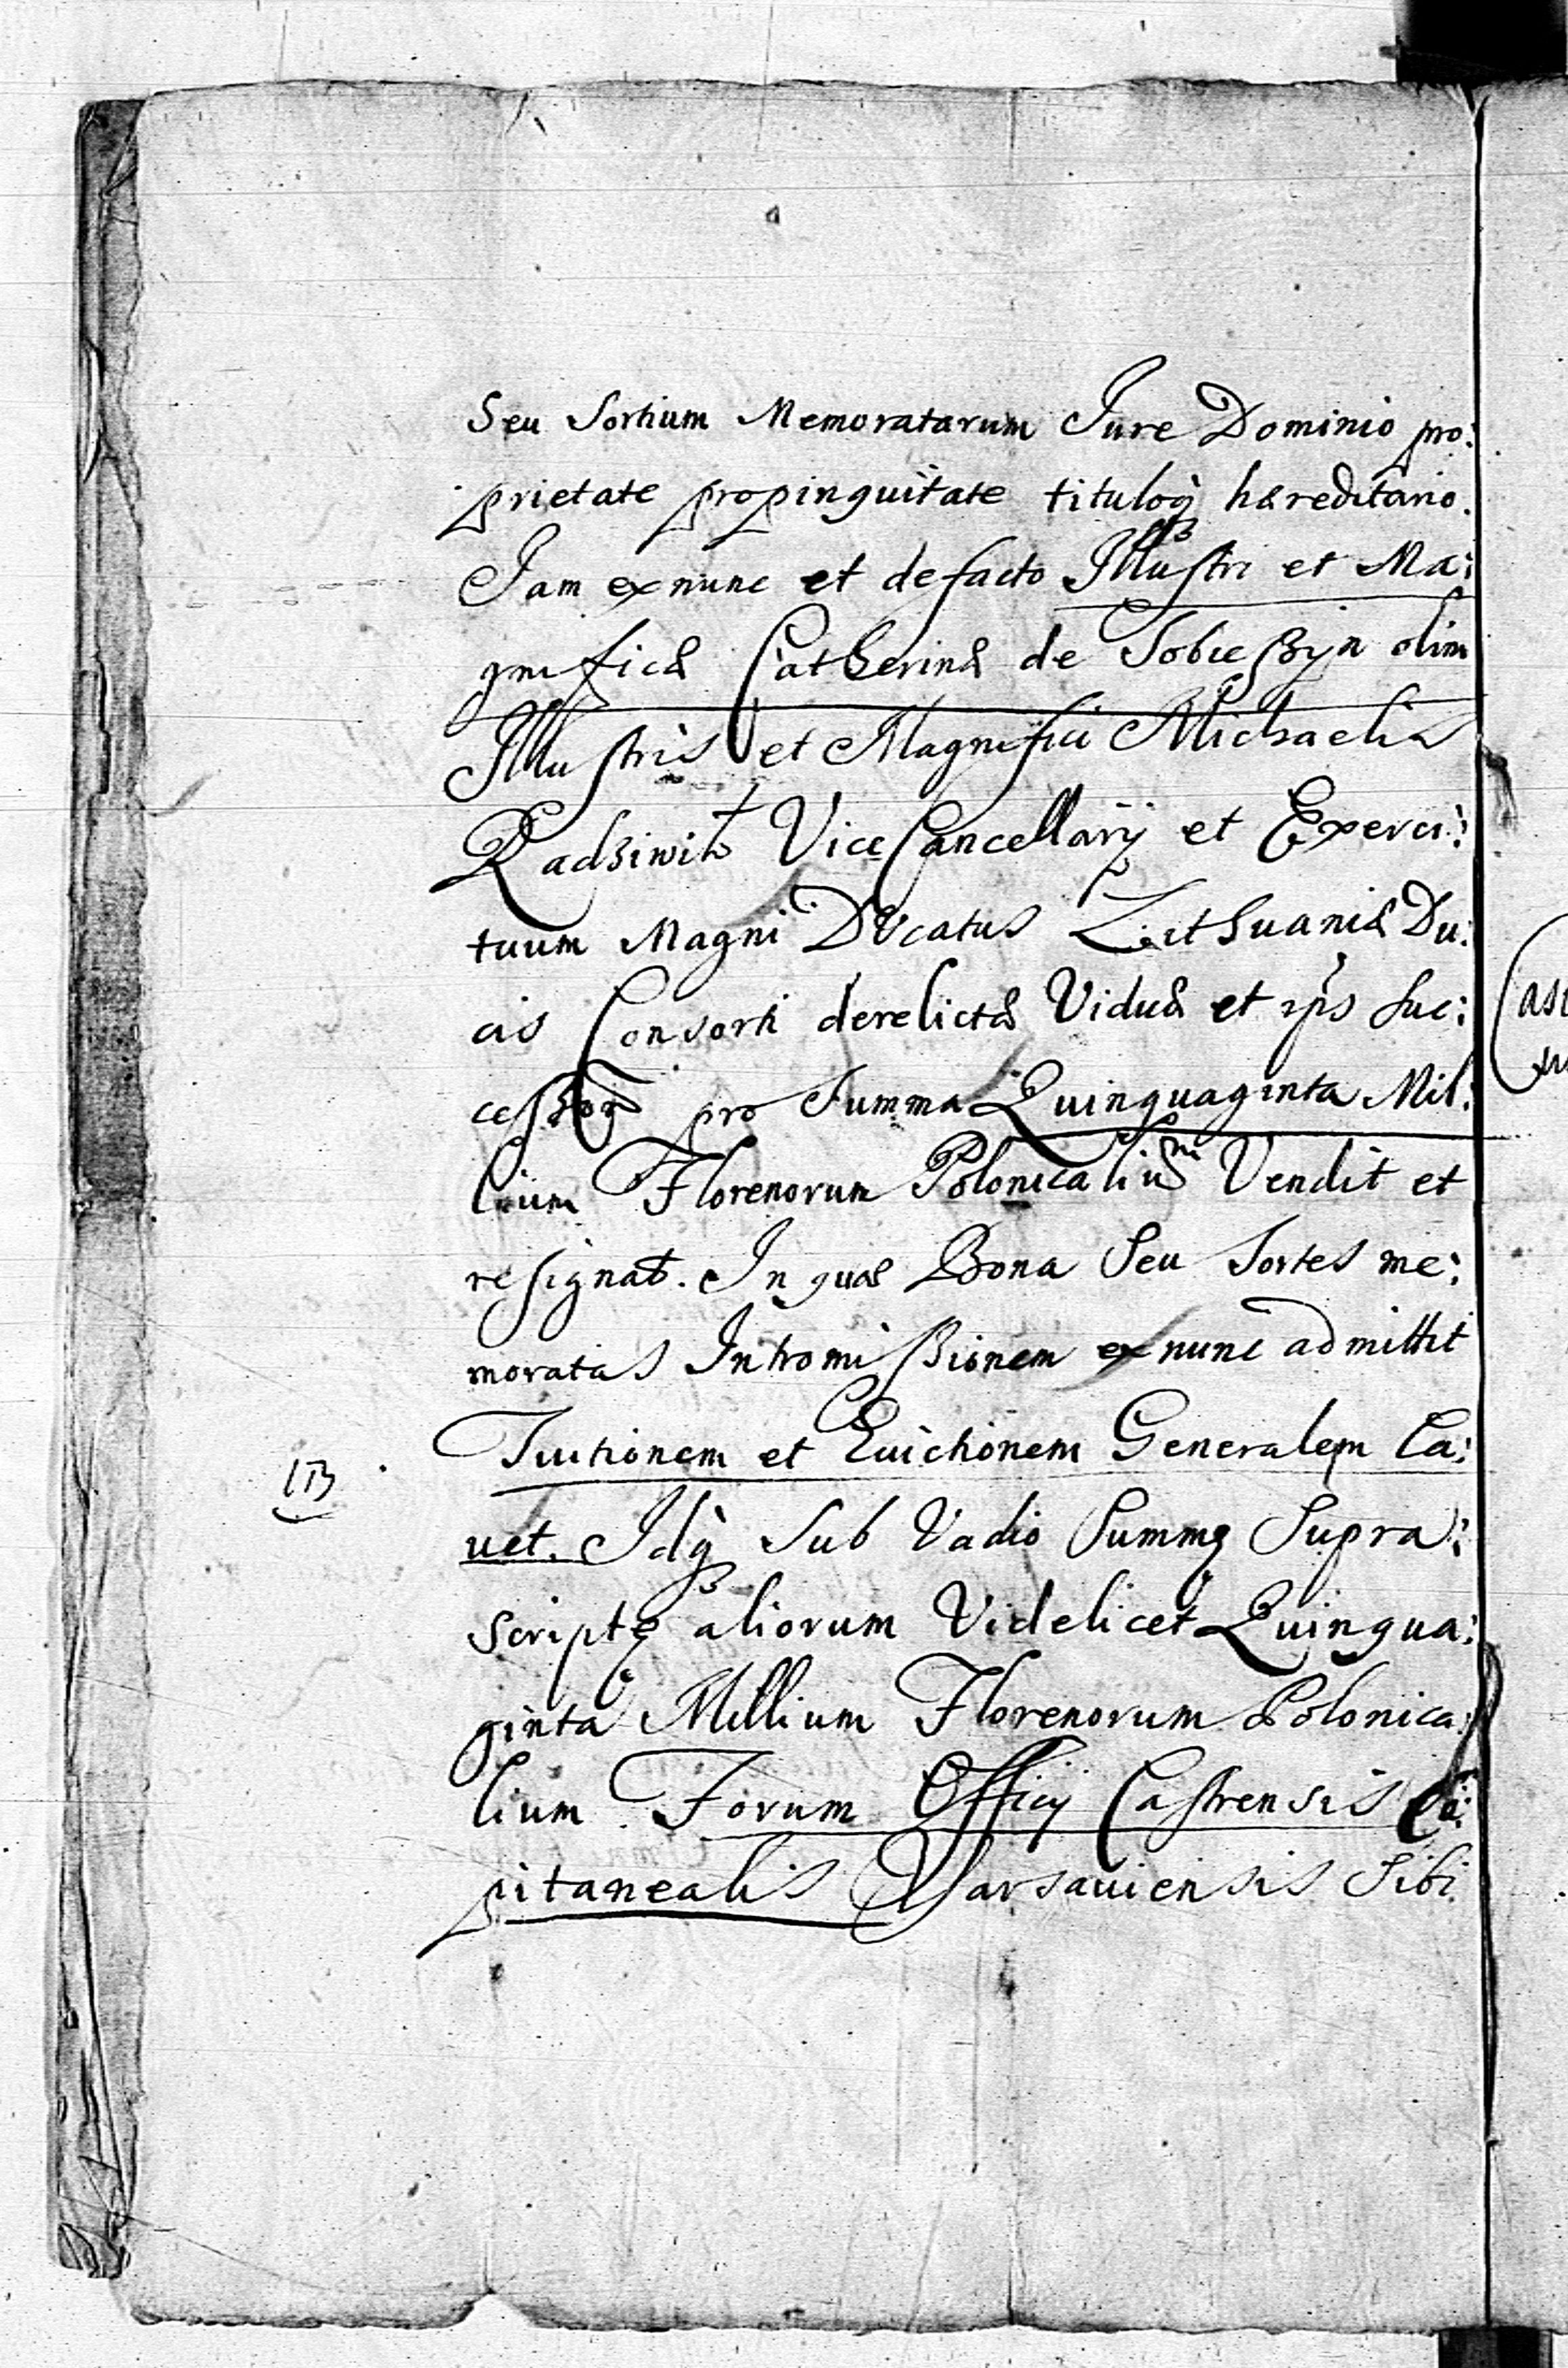 Seu Sortium Memoratarum Jure Dominio pro:
prietate propinquitate tituloq hæreditario.
Jam ex nunc et de facto Illustri et Ma:
gnificæ Catherinæ de Sobieszyn olim
Illustris et Magnifici Michaelis
Radziwił ViceCancellarij et Exerci:
tuum Magni Ducatus Lithuaniæ Du:
cis Consorti derelictæ Viduæ et ips Suc:
pro Summa Quinquaginta Mil:
lium Florenorum Polonicalium Vendit et
resignat. In quæ Bona Seu Sortes me:
moratas Intromissionem ex nunc admittit
Tuitionem et Euictionem Generalem Ca:
uet. Idq Sub Vadio Summę Supra:
scriptę aliorum Videlicet Quinqua:
ginta Millium Florenorum Polonica:
lium Forum Officij Castrensis Ca:
pitanealis Varsauiensis Sibi